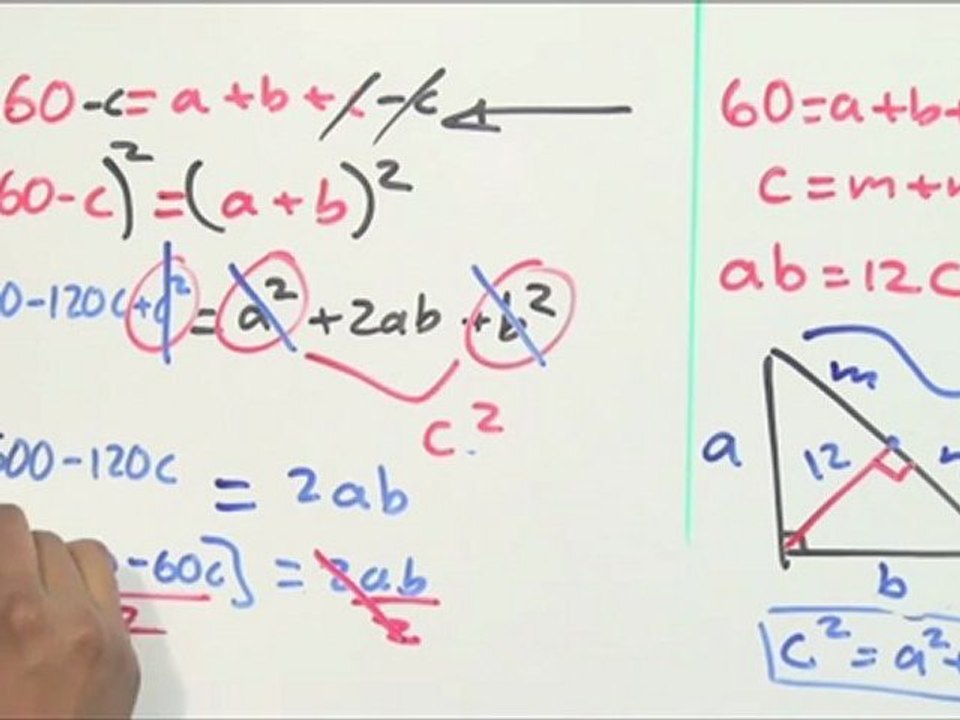 60-c=a+b+c-c
60-c)²=(a+b)²
0-120c+c²=a²+2ab+b²
c²
600-120c=2ab
-60c]=2ab
2
2
60=a+b+
c=m+n
ab=12c
m
a
12
n
b
c²=a²+